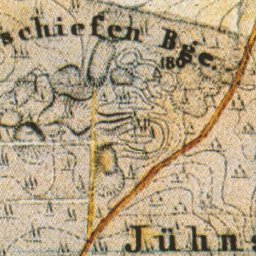 schiefen Bge.
Jühns